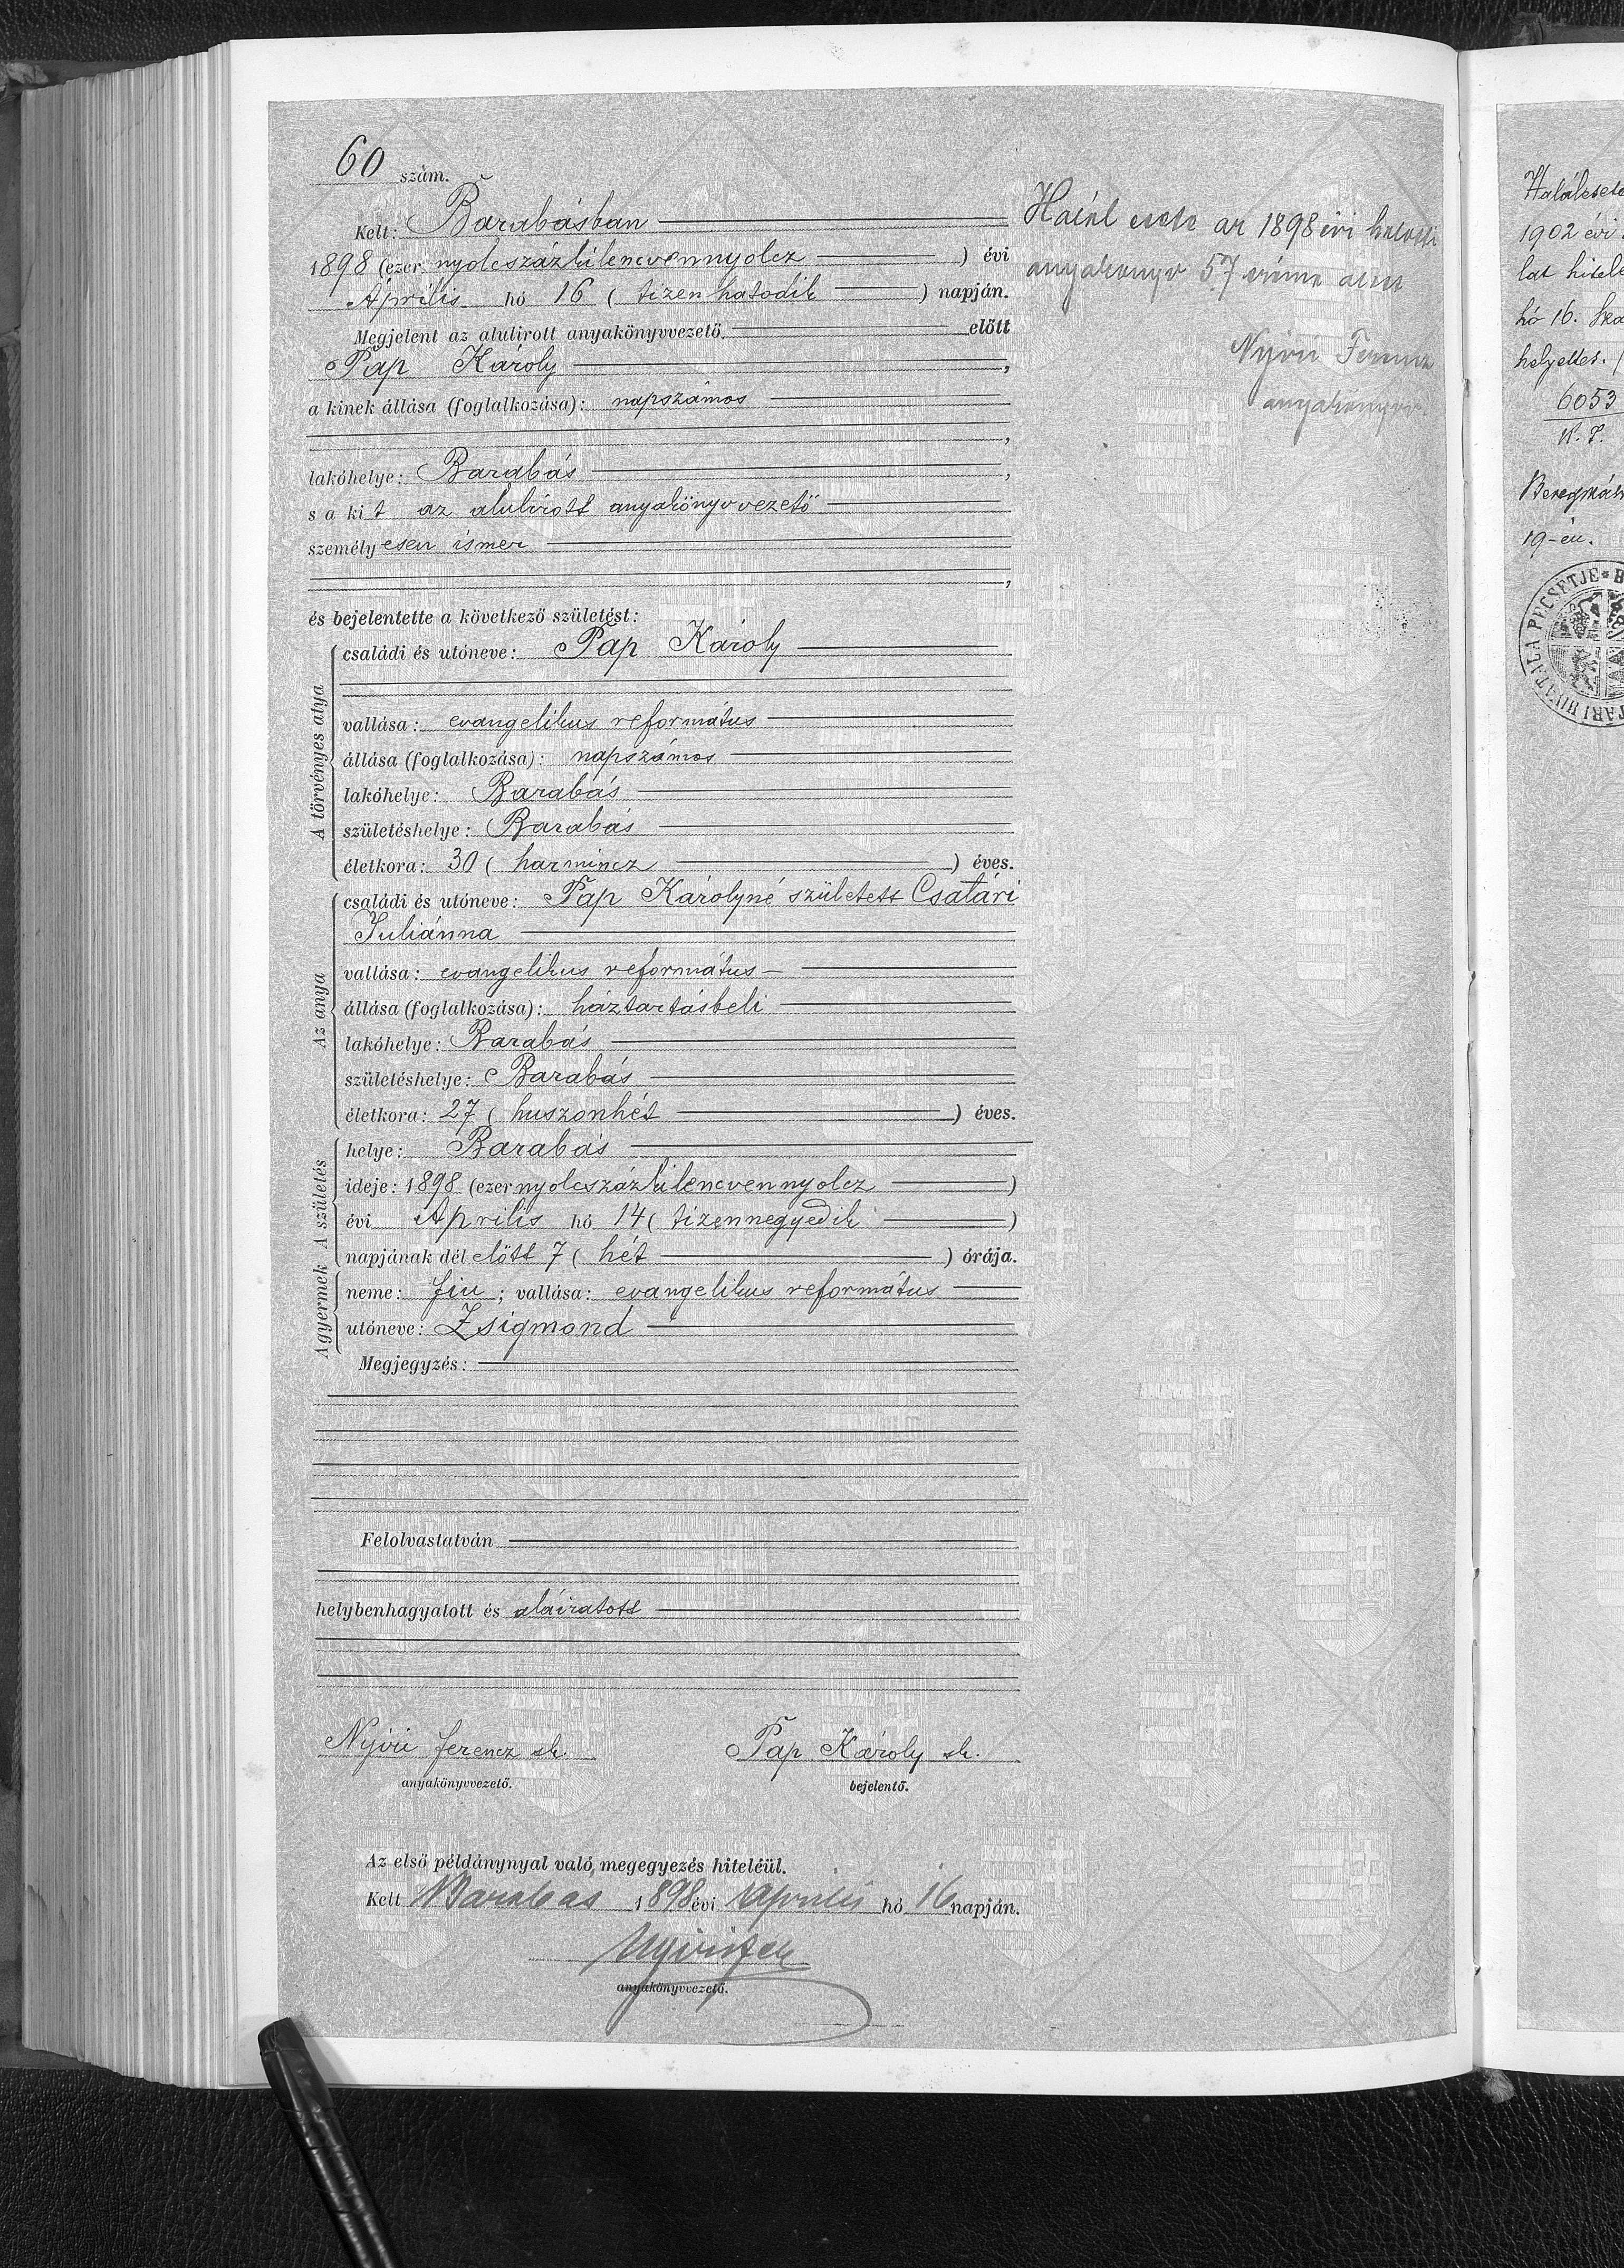 60 szám.
Kelt: Barabásban
1898 (ezer nyolcszázkilencvennyolcz ) évi
Április hó 16 ( tizenhatodik ) napján.
Megjelent az alulirott anyakönyvvezető. előtt
Pap Károly ,
a kinek állása (foglalkozása): napszámos
,
lakóhelye: Barabás ,
s a kit az alulirott anyakönyvvezető
személyesen ismer
,
és bejelentette a következő születést:
A törvényes atya
családi és utóneve: Pap Károly
vallása: evangelikus református
állása (foglalkozása): napszámos
lakóhelye: Barabás
születéshelye: Barabás
életkora: 30 ( harmincz ) éves.
Az anya
családi és utóneve: Pap Károlyné született Csatári
Juliánna
vallása: evangelikus református
állása (foglalkozása): háztartásbeli
lakóhelye: Barabás
születéshelye: Barabás
életkora: 27 ( huszonhét ) éves.
A születés
helye: Barabás
ideje: 1898 (ezernyolcszázkilencvennyolcz )
évi Április hó 14 ( tizennegyedik )
napjának délelőtt 7 ( hét ) órája.
A gyermek
neme: fiu ; vallása: evangelikus református
utóneve: Zsigmond
Megjegyzés:
Felolvastatván
helybenhagyatott és aláiratott
Nyiri Ferencz sk.
anyakönyvvezető.
Pap Károly sk.
bejelentő.
Az első példánynyal való megegyezés hiteléül.
Kelt Barabás 1898 évi április hó 16 napján.
Nyiri
anyakönyvvezető.
Halál esete az 1898 évi halotti
anyakönyv 57 száma alatt
Nyiri Ferencz
anyakönyvv.
1902 évi
hó 16.
helyettes.
6053
19-én.